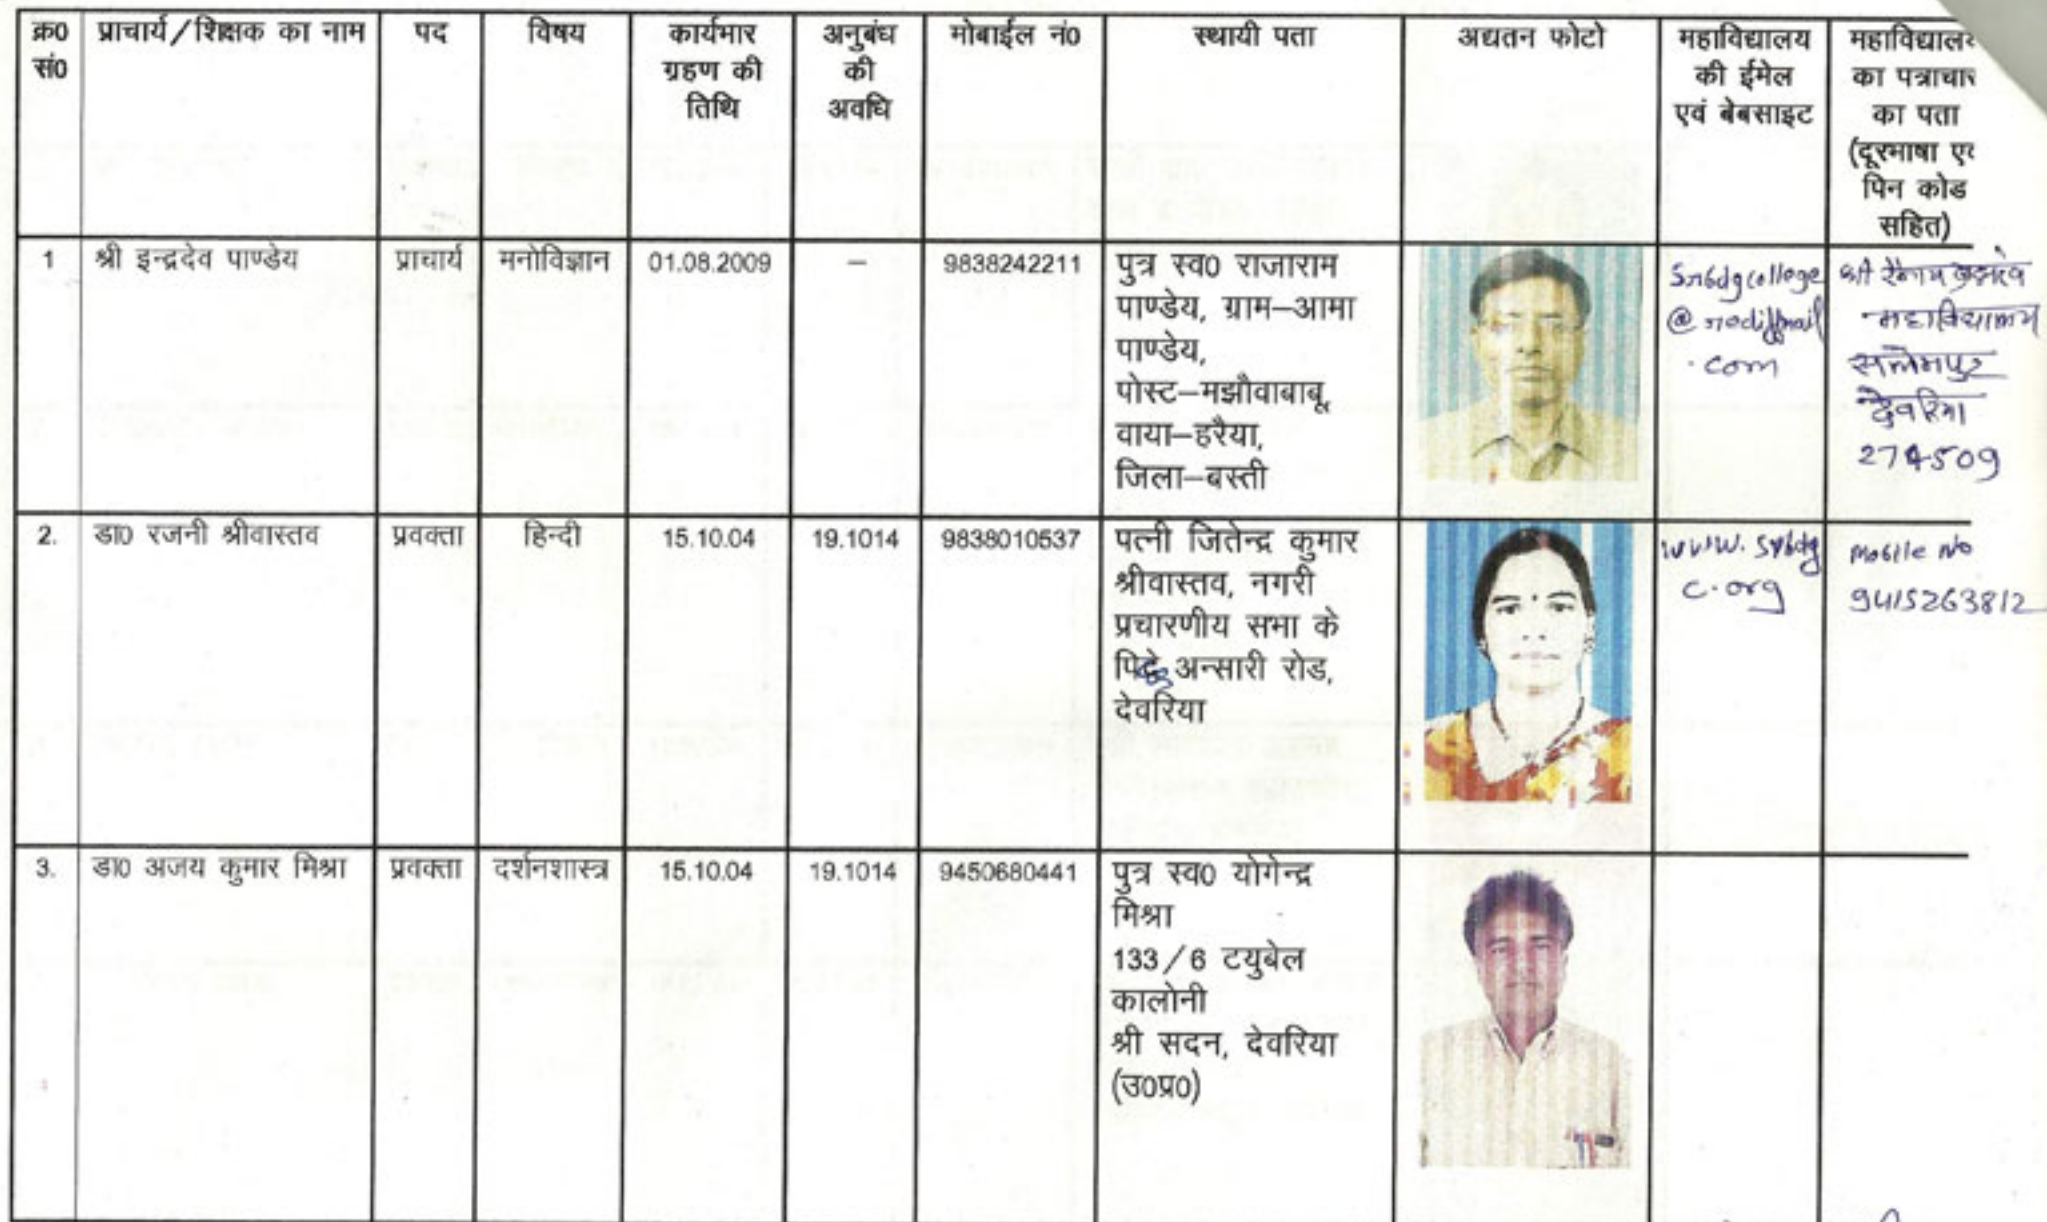 क्र0 सं0
प्राचार्य/शिक्षक का नाम
पद
विषय
कार्यभार
ग्रहण की
तिथि
अनुबंध
की
अवधि
मोबाईल नं0
स्थायी पता
अद्यतन फोटो
महाविद्यालय
की ईमेल
एवं बेबसाइट
महाविद्यालय
का पत्राचार
का पता
(दूरभाषा एवं
पिन कोड
सहित)
1
श्री इन्द्रदेव पाण्डेय
प्राचार्य
मनोविज्ञान
01.08.2009
–
9838242211
पुत्र स्व0 राजाराम
पाण्डेय, ग्राम–आमा
पाण्डेय,
पोस्ट–मझौवाबाबू,
वाया–हरैया,
जिला–बस्ती
Snbdgcollege
@rediffmail
.com
श्री
महाविद्यालय
सलेमपुर
देवरिया
274509
2.
डा0 रजनी श्रीवास्तव
प्रवक्ता
हिन्दी
15.10.04
19.1014
9838010537
पत्नी जितेन्द्र कुमार
श्रीवास्तव, नगरी
प्रचारणीय सभा के
अन्सारी रोड,
देवरिया
www.
c.org
Mobile No
9415263812
3.
डा0 अजय कुमार मिश्रा
प्रवक्ता
दर्शनशास्त्र
15.10.04
19.1014
9450680441
पुत्र स्व0 योगेन्द्र
मिश्रा
133/6 टयुबेल
कालोनी
श्री सदन, देवरिया
(उ0प्र0)